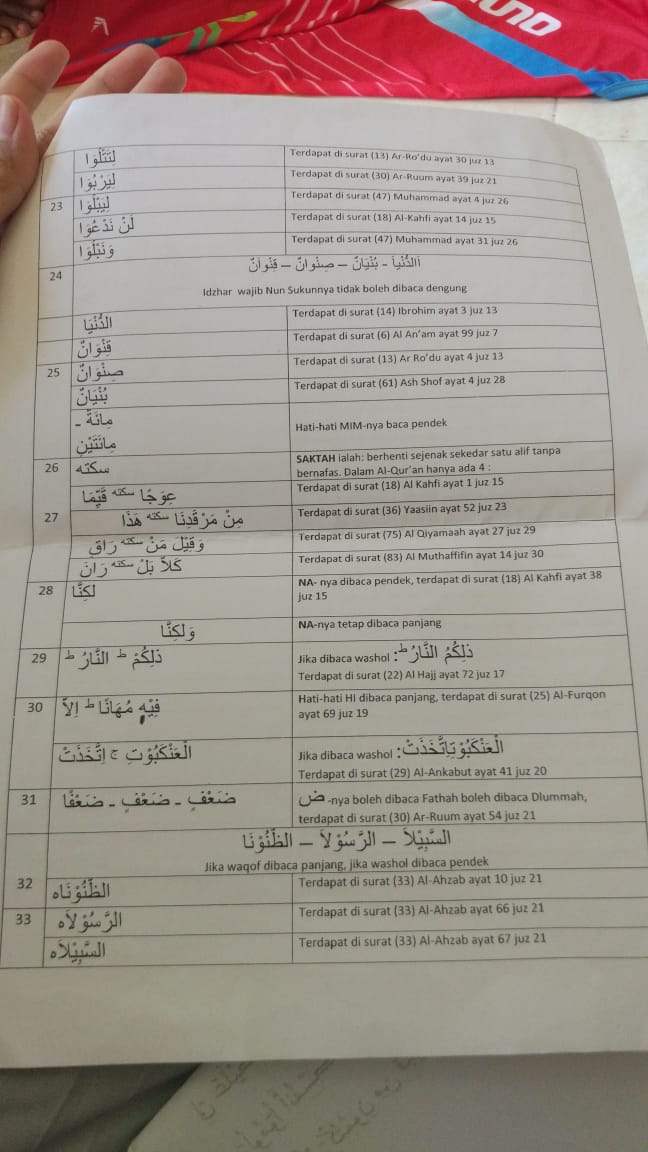 لِتَتْلُوَا۟ Terdapat di surat (13) Ar-Ro'du ayat 30 juz 13
لِيَرْبُوَا۟ Terdapat di surat (30) Ar-Ruum ayat 39 juz 21
23 لِيَبْلُوَا۟ Terdapat di surat (47) Muhammad ayat 4 juz 26
لَنْ نَدْعُوَا۟ Terdapat di surat (18) Al-Kahfi ayat 14 juz 15
وَنَبْلُوَا۟ Terdapat di surat (47) Muhammad ayat 31 juz 26
24 اَلدُّنْيَا – بُنْيَانٌ – صِنْوَانٌ – قِنْوَانٌ
Idzhar wajib Nun Sukunnya tidak boleh dibaca dengung
الدُّنْيَا Terdapat di surat (14) Ibrohim ayat 3 juz 13
قِنْوَانٌ Terdapat di surat (6) Al An'am ayat 99 juz 7
25 صِنْوَانٌ Terdapat di surat (13) Ar Ro'du ayat 4 juz 13
بُنْيَانٌ Terdapat di surat (61) Ash Shof ayat 4 juz 28
مِائَةٌ -
مِائَتَيْنِ Hati-hati MIM-nya baca pendek
26 سكته SAKTAH ialah: berhenti sejenak sekedar satu alif tanpa
bernafas. Dalam Al-Qur'an hanya ada 4 :
عِوَجًا سكته قَيِّمًا Terdapat di surat (18) Al Kahfi ayat 1 juz 15
27 مِنْ مَرْقَدِنَا سكته هَذَا Terdapat di surat (36) Yaasiin ayat 52 juz 23
وَقِيْلَ مَنْ سكته رَاقٍ Terdapat di surat (75) Al Qiyamaah ayat 27 juz 29
كَلَّا بَلْ سكته رَانَ Terdapat di surat (83) Al Muthaffifin ayat 14 juz 30
28 لَكِنَّا NA- nya dibaca pendek, terdapat di surat (18) Al Kahfi ayat 38
juz 15
وَلَكِنَّا NA-nya tetap dibaca panjang
29 ذَلِكُمْ ط النَّارُ ط Jika dibaca washol : ذَلِكُمُ النَّارُ ط
Terdapat di surat (22) Al Hajj ayat 72 juz 17
30 فِيْهِ مُهَانًا ط اِلَّا Hati-hati HI dibaca panjang, terdapat di surat (25) Al-Furqon
ayat 69 juz 19
الْعَنْكَبُوْتِ ج اِتَّخَذَتْ Jika dibaca washol : الْعَنْكَبُوْتِاتَّخَذَتْ
Terdapat di surat (29) Al-Ankabut ayat 41 juz 20
31 ضَعْفٍ - ضَعْفٍ - ضَعْفًا ض -nya boleh dibaca Fathah boleh dibaca Dlummah,
terdapat di surat (30) Ar-Ruum ayat 54 juz 21
السَّبِيْلَا – الرَّسُوْلَا – الظُّنُوْنَا
Jika waqof dibaca panjang, jika washol dibaca pendek
32 الظُّنُوْنَاه Terdapat di surat (33) Al-Ahzab ayat 10 juz 21
33 الرَّسُوْلَاه Terdapat di surat (33) Al-Ahzab ayat 66 juz 21
السَّبِيْلَاه Terdapat di surat (33) Al-Ahzab ayat 67 juz 21